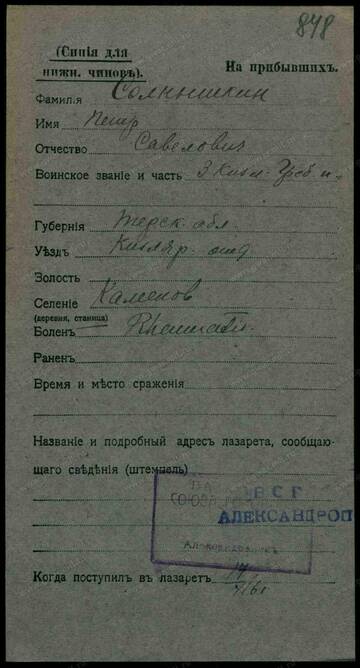 848
(Синія для
нижн. чиновъ).
На прибывшихъ.
Фамилія Солнышкин
Имя Петр
Отчество Савелович
Воинское званіе и часть 3 Кизл. Греб. п.
Губернія Терск. обл.
Уѣздъ Кизляр. отд
Золость
Селеніе Каменов
(деревня, станица)
Боленъ Rheumati.
Раненъ
Время и мѣсто сраженія
Названіе и подробный адресъ лазарета, сообщаю-
щаго свѣдѣнія (штемпель)
ВСГ
АЛЕКСАНДРОП
Когда поступилъ въ лазаретъ